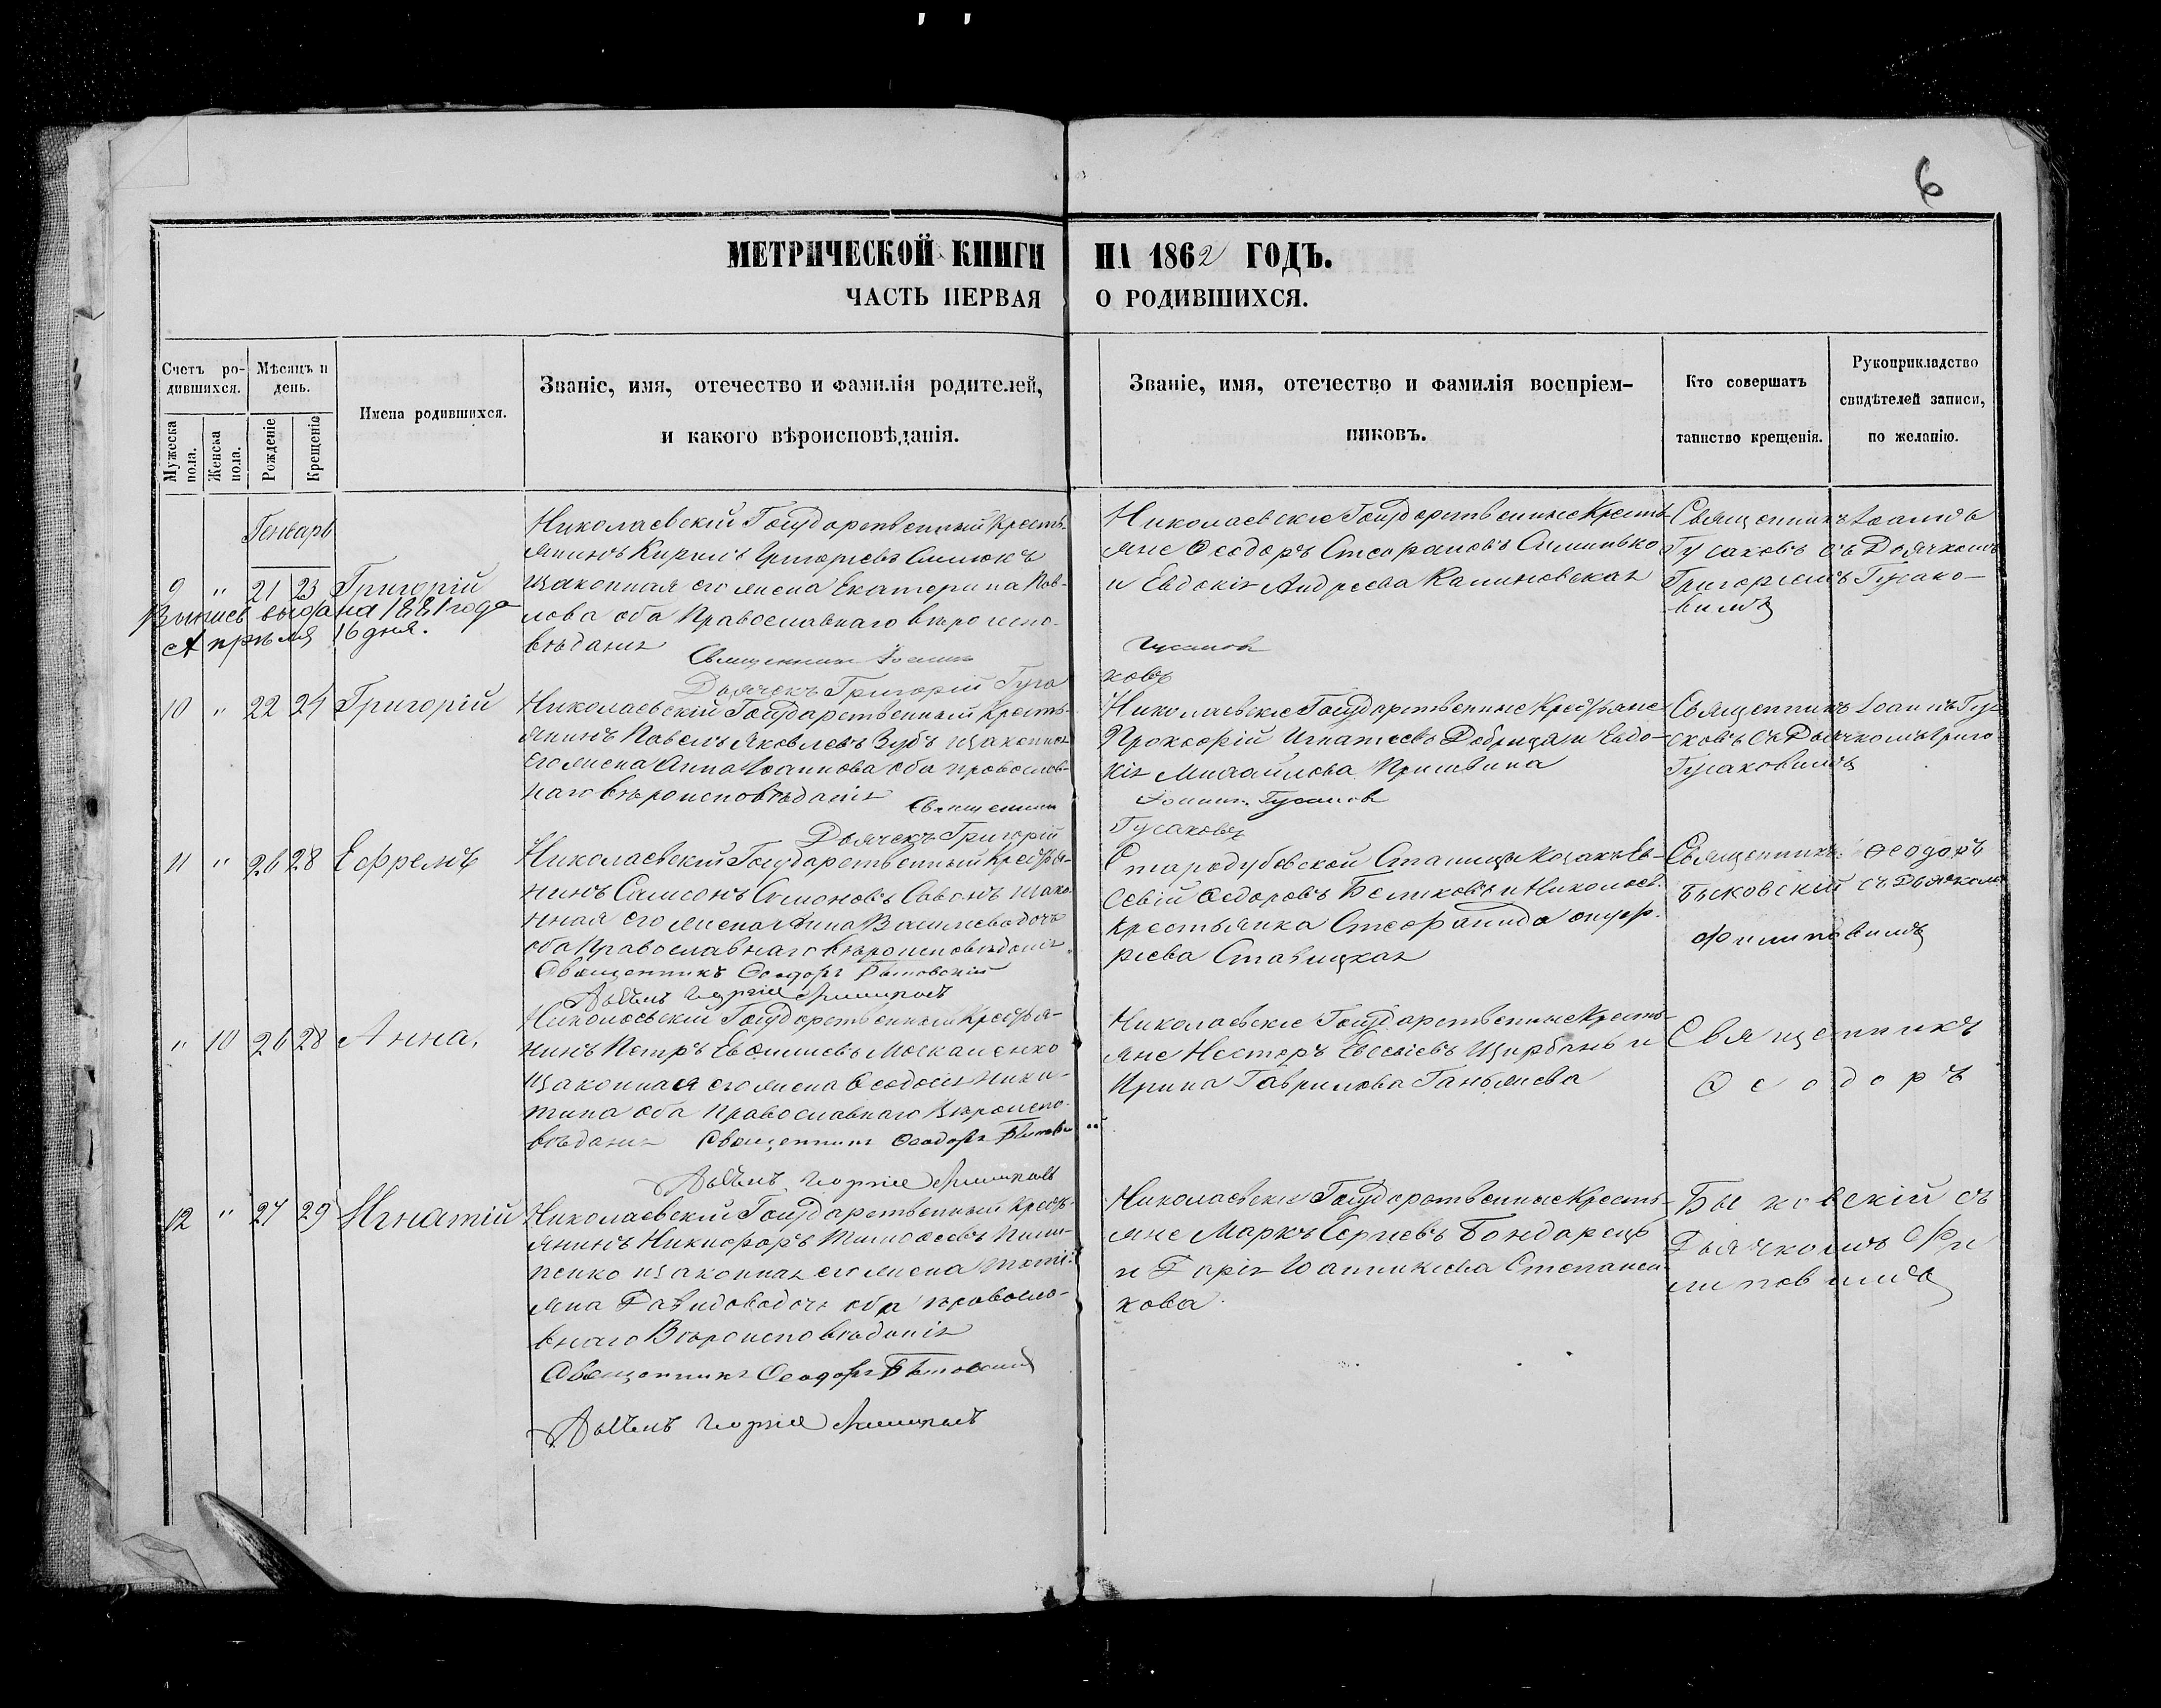 6
МЕТРИЧЕСКОЙ КНИГИ НА 1862 ГОДЪ.
ЧАСТЬ ПЕРВАЯ О РОДИВШИХСЯ.
Счетъ ро-
дившихся.
Мужеска
пола.
Женска
пола.
Мѣсяцъ и
день.
Рожденіе
Крещеніе
Имена родившихся.
Званіе, имя, отечество и фамилія родителей,
и какого вѣроисповѣданія.
Званіе, имя, отечество и фамилія воспріем-
никовъ.
Кто совершатъ
таинство крещенія.
Рукоприкладство
свидѣтелей записи,
по желанію.
Генварь
9 " 21 23 Григорій
Выпись выдана 1881 года
Апрѣля 16 дня.
Николаевскій Государственный Кресть-
янинъ Кирилъ Григоріевъ
изаконная его жена Екатерина Пав-
лова оба Православнаго вѣроиспо-
вѣданія
Священникъ Іоаннъ Гусаковъ
Дьячекъ Григорій Гусаковъ
Николаевскіе Государственные Кресть-
яне Ѳеодоръ Стефановъ
и Евдокія Андреева Калиновская
Священникъ Іоаннъ
Гусаковъ съ Дьячкомъ
Григоріемъ Гусако-
вимъ
10 " 22 24 Григорій
Николаевскій Государственный Кресть-
янинъ Павелъ Яковлевъ Зубъ изаконная
его жена Анна Іоаннова оба православ-
наго вѣроисповѣданія
Священникъ Іоаннъ Гусаковъ
Дьячекъ Григорій Гусаковъ
Николаевскіе Государственные Крестьяне
Прокофій Игнатіевъ Добрица и Евдо-
кія Михайлова
Священникъ Іоаннъ Гуса-
ковъ съ Дьячкомъ Григо
Гусаковимъ
11 " 26 28 Ефремъ
Николаевскій Государственный Крестья-
нинъ Самсонъ изако-
нная его жена Анна Васильева дочь
оба Православнаго вѣроисповѣданія
Священникъ Ѳеодоръ Быковскій
Стародубовской Станицы Козакъ Ев-
севій Ѳедоровъ Беликовъ и Николаев.
Крестьянка Стефанида Онуф-
ріева Ставицкая
Священникъ Ѳеодоръ
Быковскій съ Дьячкомъ
Филиповимъ
" 10 26 28 Анна,
Николаевскій Государственный Крестья-
нинъ Петръ Москаленко
изаконная его жена Ѳеодосія Ники-
тина оба Православнаго Вѣроиспо-
вѣданія Священникъ Ѳеодоръ
Николаевскіе Государственные Кресть-
яне Несторъ Щирбань и
Ирина Гаврилова
Священникъ
Ѳеодоръ
12 " 27 29 Игнатій
Николаевскій Государственный Кресть-
янинъ Никифоръ Тимоѳеевъ Пили-
пенко изаконная его жена Тати-
яна Давидова дочь оба православ-
внаго Вѣроисповѣданія
Священникъ Ѳеодоръ Быковскій
Николаевскіе Государственные Кресть-
яне Маркъ Сергіевъ Бондарець
и Дарія Іоанникіева Степанен-
кова.
Быковскій съ
Дьячкомъ Фи
липовимъ